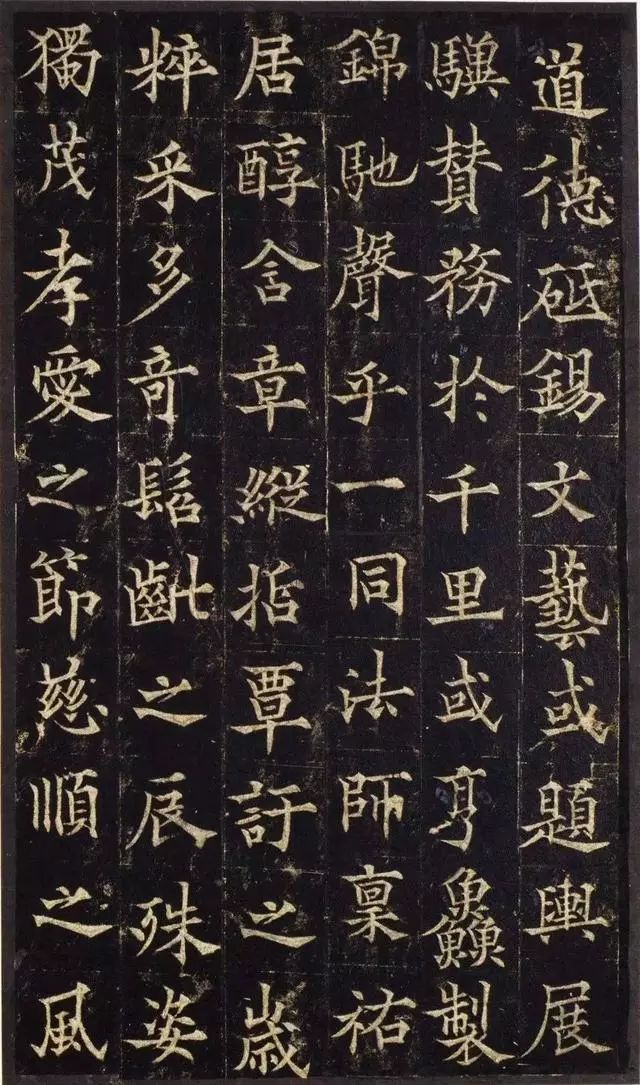 道德砥錫文藝或題輿展
驥賛務於千里或亨鱻製
錦馳聲乎一同法師稟祐
居醇含章縱哲覃訏之歲
粹采多奇髫齔之辰殊姿
獨茂孝愛之節慈順之風